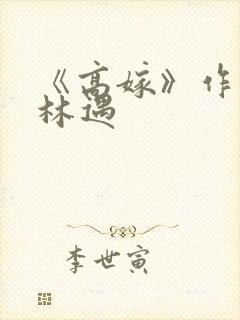 《高嫁》作
林遇
李世寅